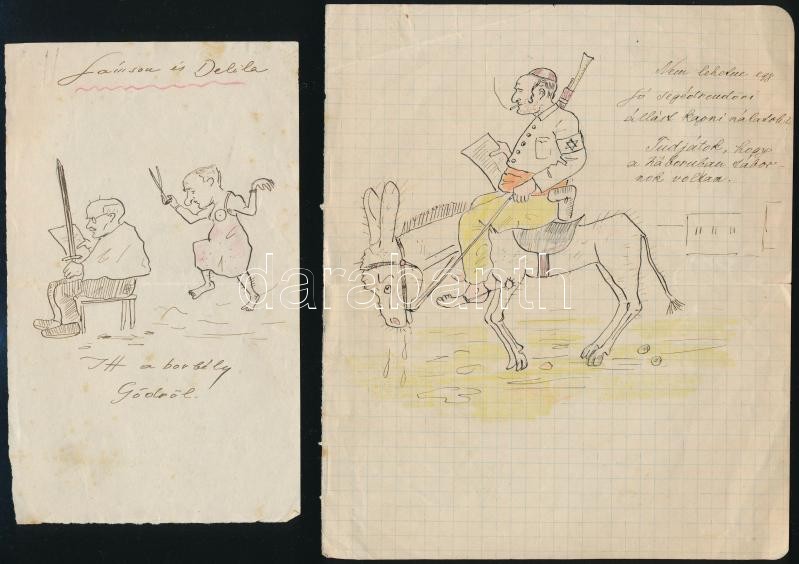 Sámson és Delila
Itt a borbély
Gödről.
Nem lehetne egy
jó segédrendőri
állást kapni nálatok?
Tudjátok, hogy
a háboruban tábor-
nok voltam.
darabanth